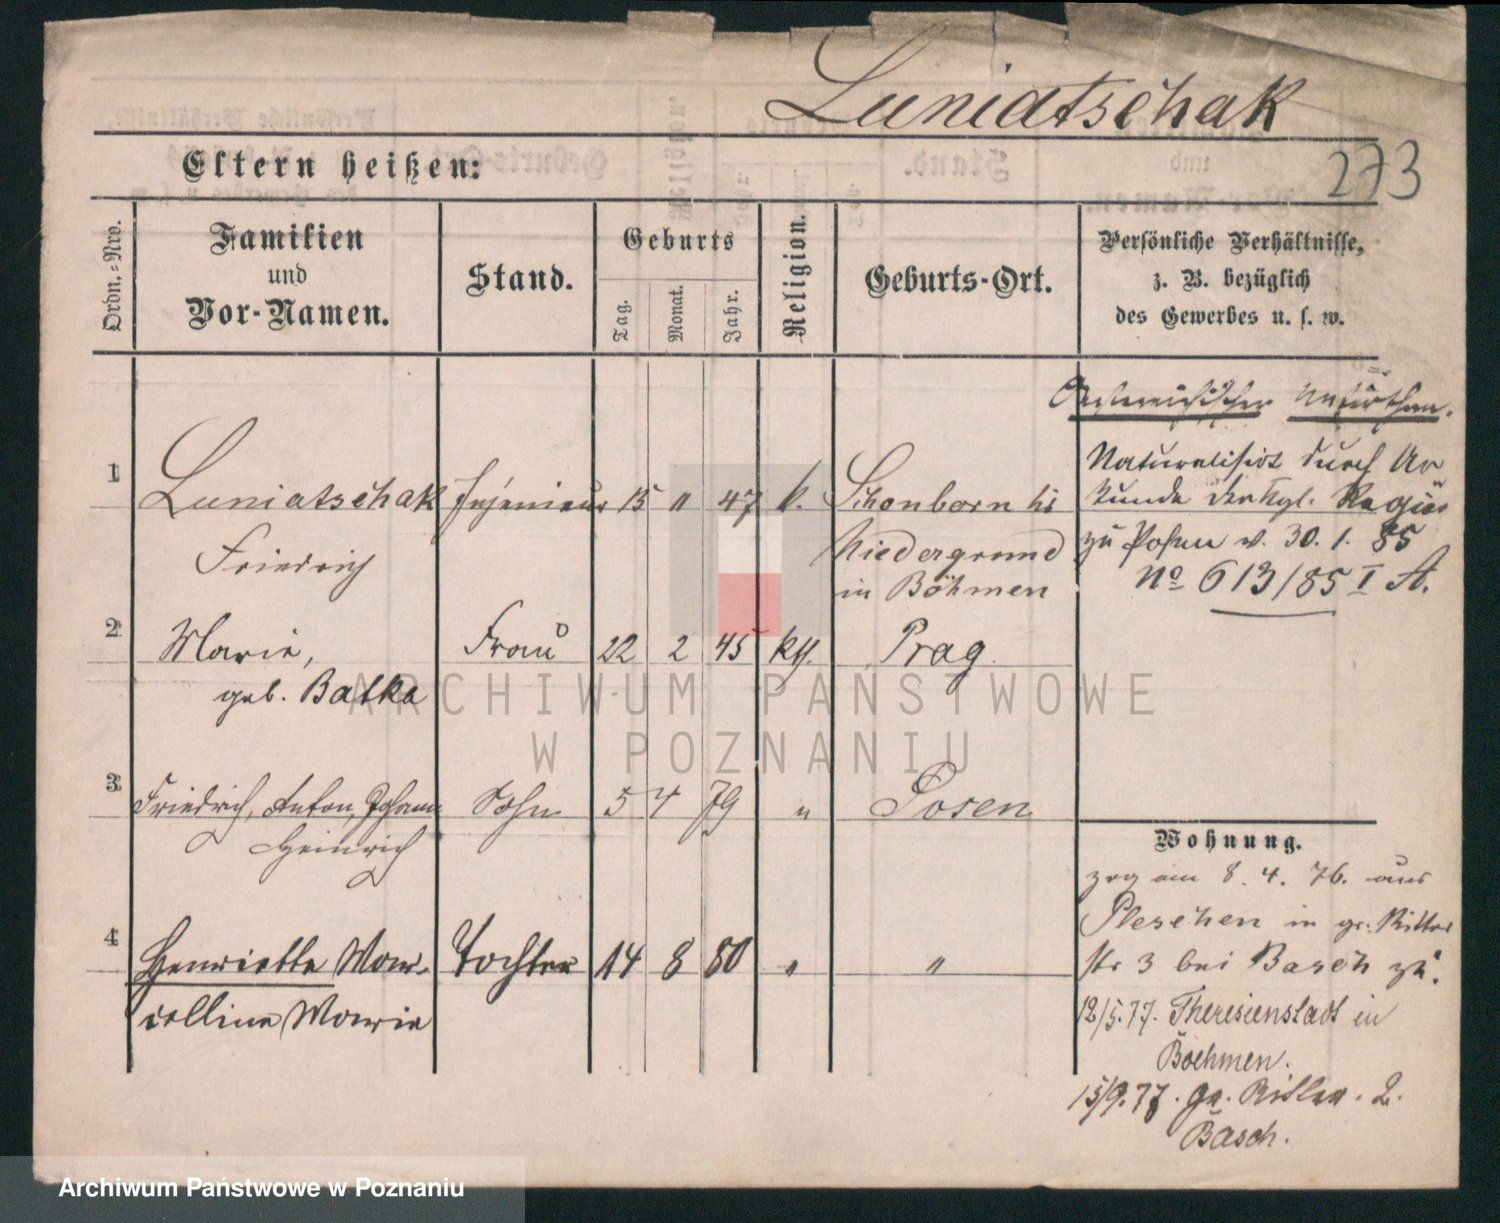 Luniatschak
273
Eltern heißen:
Ordn.=Nro.
Familien
und
Vor-Namen.
Stand.
Geburts
Tag.
Monat.
Jahr.
Religion.
Geburts-Ort.
Persönliche Verhältnisse,
z. B. bezüglich
des Gewerbes u. s. w.
Oesterreichischer Unterthan.
1
Luniatschak
Friedrich
Ingenieur
15 11 47
k.
Schonborn bis
Niedergrund
in Böhmen
Naturalisirt durch Ur
kunde der Kgl. Regier
zu Posen v. 30. 1. 85
No 613/85 I A.
2
Marie,
geb. Batka
Frau
22 2 45
kth.
Prag
3
Friedrich, Anton, Johann
Heinrich
Sohn
5 4 79
"
Posen
4
Henriette Mar-
celline Marie
Tochter
14 8 80
"
"
Wohnung.
zog am 8. 4. 76. aus
Pleschen in gr. Ritter
str 3 bei Basch zu.
12/5.77. Theresienstadt in
Boehmen.
15/9.77. Gr. Ritter. 2.
Basch.
ARCHIWUM PAŃSTWOWE
W POZNANIU
Archiwum Państwowe w Poznaniu